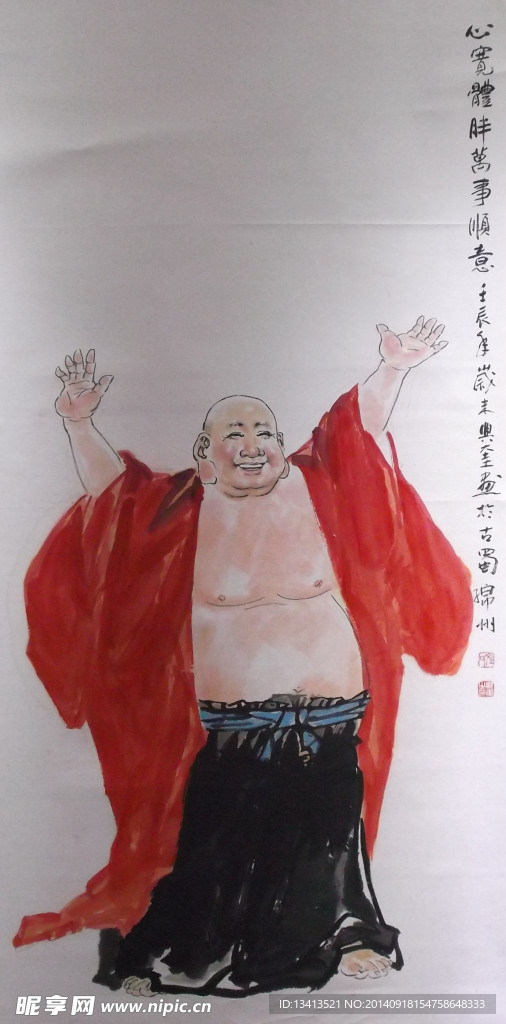 心寬體胖萬事順意
壬辰年歲末興奎画於古蜀綿州
昵享网 www.nipic.cn
ID:13413521 NO:20140918154758648333